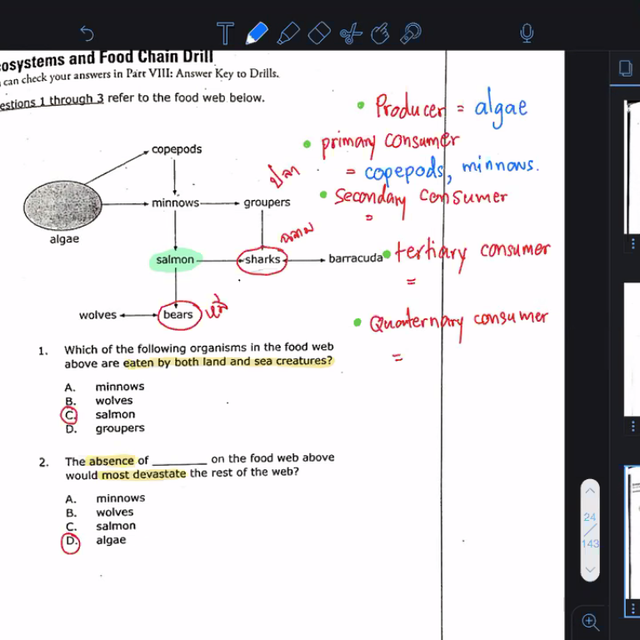 osystems and Food Chain Drill
can check your answers in Part VIII: Answer Key to Drills.
estions 1 through 3 refer to the food web below.
copepods
minnows
groupers
algae
salmon
sharks
barracuda
wolves
bears
ปลา
ฉลาม
หมี
• Producer = algae
• primary consumer
= copepods, minnows.
• Secondary consumer
=
• tertiary consumer
=
• Quaternary consumer
=
1. Which of the following organisms in the food web
above are eaten by both land and sea creatures?
A. minnows
B. wolves
C. salmon
D. groupers
2. The absence of ________ on the food web above
would most devastate the rest of the web?
A. minnows
B. wolves
C. salmon
D. algae
24
143